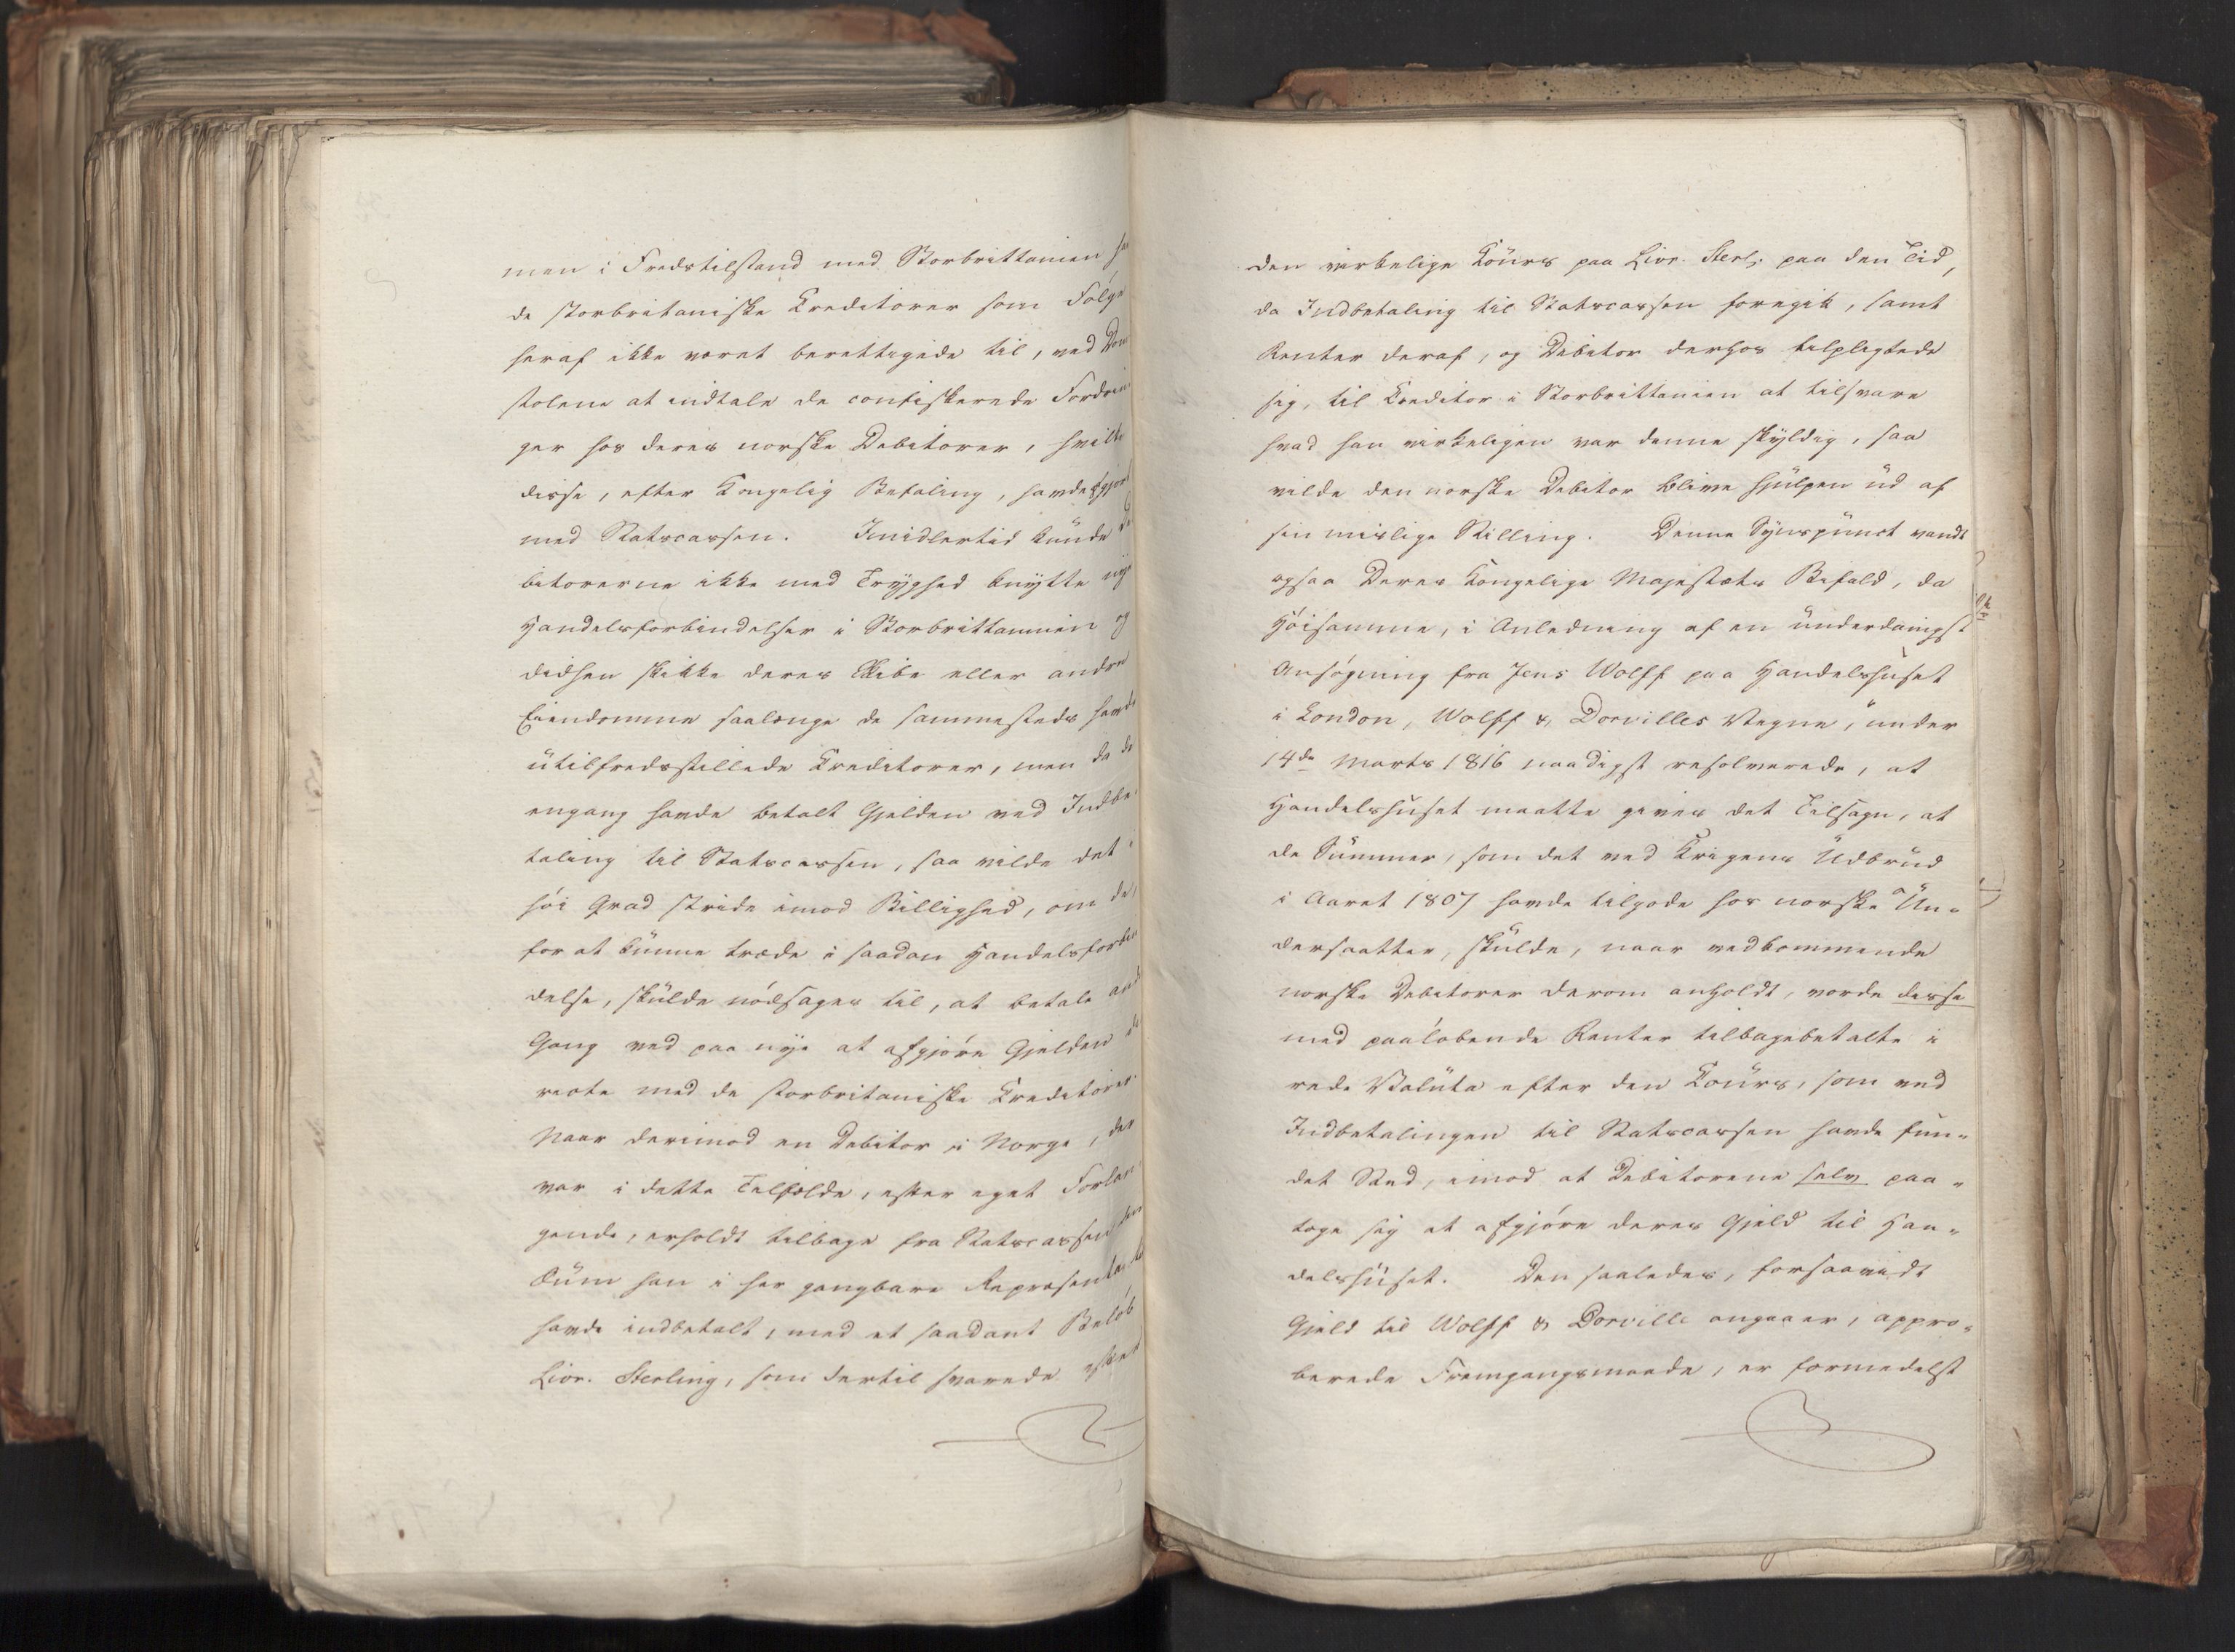 men i Fredstilstand med Storbrittanien ha
de storbritaniske Creditorer som Følge
heraf ikke været berettigede til, ved Dom
stolene at indtale de confiskerede Fordrin
ger hos deres norske Debitorer, hvilke
disse, efter Kongelig Befaling, havde afgjort
med Statscassen. Imidlertid kunde De
bitorerne ikke med Tryghed knytte nye
Handelsforbindelser i Storbrittannien og
didhen skikke deres Skibe eller andre
Eiendomme saalænge de sammesteds havde
utilfredsstillede Creditorer, men da de
engang havde betalt Gjelden ved Indbe
taling til Statscassen, saa vilde det i
høi Grad stride imod Billighed, om de,
for at kunne træde i saadan Handelsforbin
delse, skulde nødsages til, at betale and
Gang ved paa nye at afgjøre Gjelden di
recte med de storbritaniske Creditorer.
Naar derimod en Debitor i Norge, der
var i dette Tilfælde, efter eget Forlan
gende, erholdt tilbage fra Statscassen den
Sum han i her gangbare Repræsenta
havde indbetalt, med et saadant Beløb
Livr. Sterling, som dertil svarede efter
den virkelige Cours paa Livr. Sterl. paa den Tid,
da Indbetaling til Statscassen foregik, samt
Renter deraf, og Debitor derhos tilpligtede
sig, til Creditor i Storbrittanien at tilsvare
hvad han virkeligen var denne skyldig, saa
vilde den norske Debitor blive hjulpen ud af
sin mislige Stilling. Denne Synspunct vandt
ogsaa Deres Kongelige Majestæts Bifald, da
Høisamme, i Anledning af en underdanigst
Ansøgning fra Jens Wolff paa Handelshuset
i London, Wolff & Dorvilles Vegne, under
14de Marts 1816 naadigst resolverede, at
Handelshuset maatte gives det Tilsagn, at
de Summer, som det ved Krigens Udbrud
i Aaret 1807 havde tilgode hos norske Un-
dersaatter, skulde, naar vedkommende
norske Debitorer derom anholdt, vorde disse
med paaløbende Renter tilbagebetalte i
rede Valuta efter den Cours, som ved
Indbetalingen til Statscassen havde fun-
det Sted, imod at Debitorene selv paa-
toge sig at afgjøre deres Gjeld til Han-
delshuset. Den saaledes, forsaavidt
Gjeld til Wolff & Dorville angaaer, appro-
berede Fremgangsmaade, er formedelst